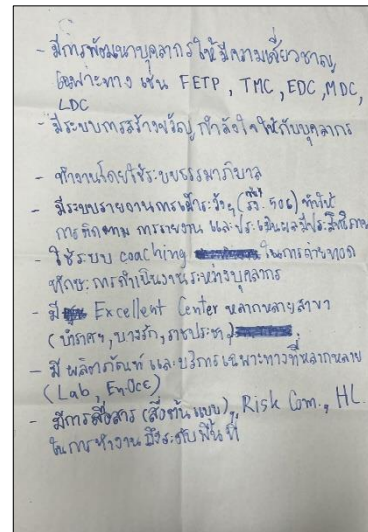 - มีการพัฒนาบุคลากรให้มีความเชี่ยวชาญ
เฉพาะทาง เช่น FETP, TMC, EDC, MDC,
LDC
- มีระบบการสร้างขวัญ กำลังใจให้กับบุคลากร
- ทำงานโดยใช้ระบบธรรมาภิบาล
- มีระบบรายงานการเฝ้าระวังฯ (รง. 506) ทำให้
การติดตาม การรายงาน และประเมินผลมีประสิทธิภาพ
- ใช้ระบบ coaching ในการถ่ายทอด
ทักษะการดำเนินงานระหว่างบุคลากร
- มี Excellent Center หลากหลายสาขา
(บำราศฯ, บางรัก, ราชประชา)
- มีผลิตภัณฑ์ และบริการเฉพาะทางที่หลากหลาย
(Lab, EnOcc)
- มีการสื่อสาร (สื่อต้นแบบ), Risk Com., HL
ในการทำงานถึงระดับพื้นที่